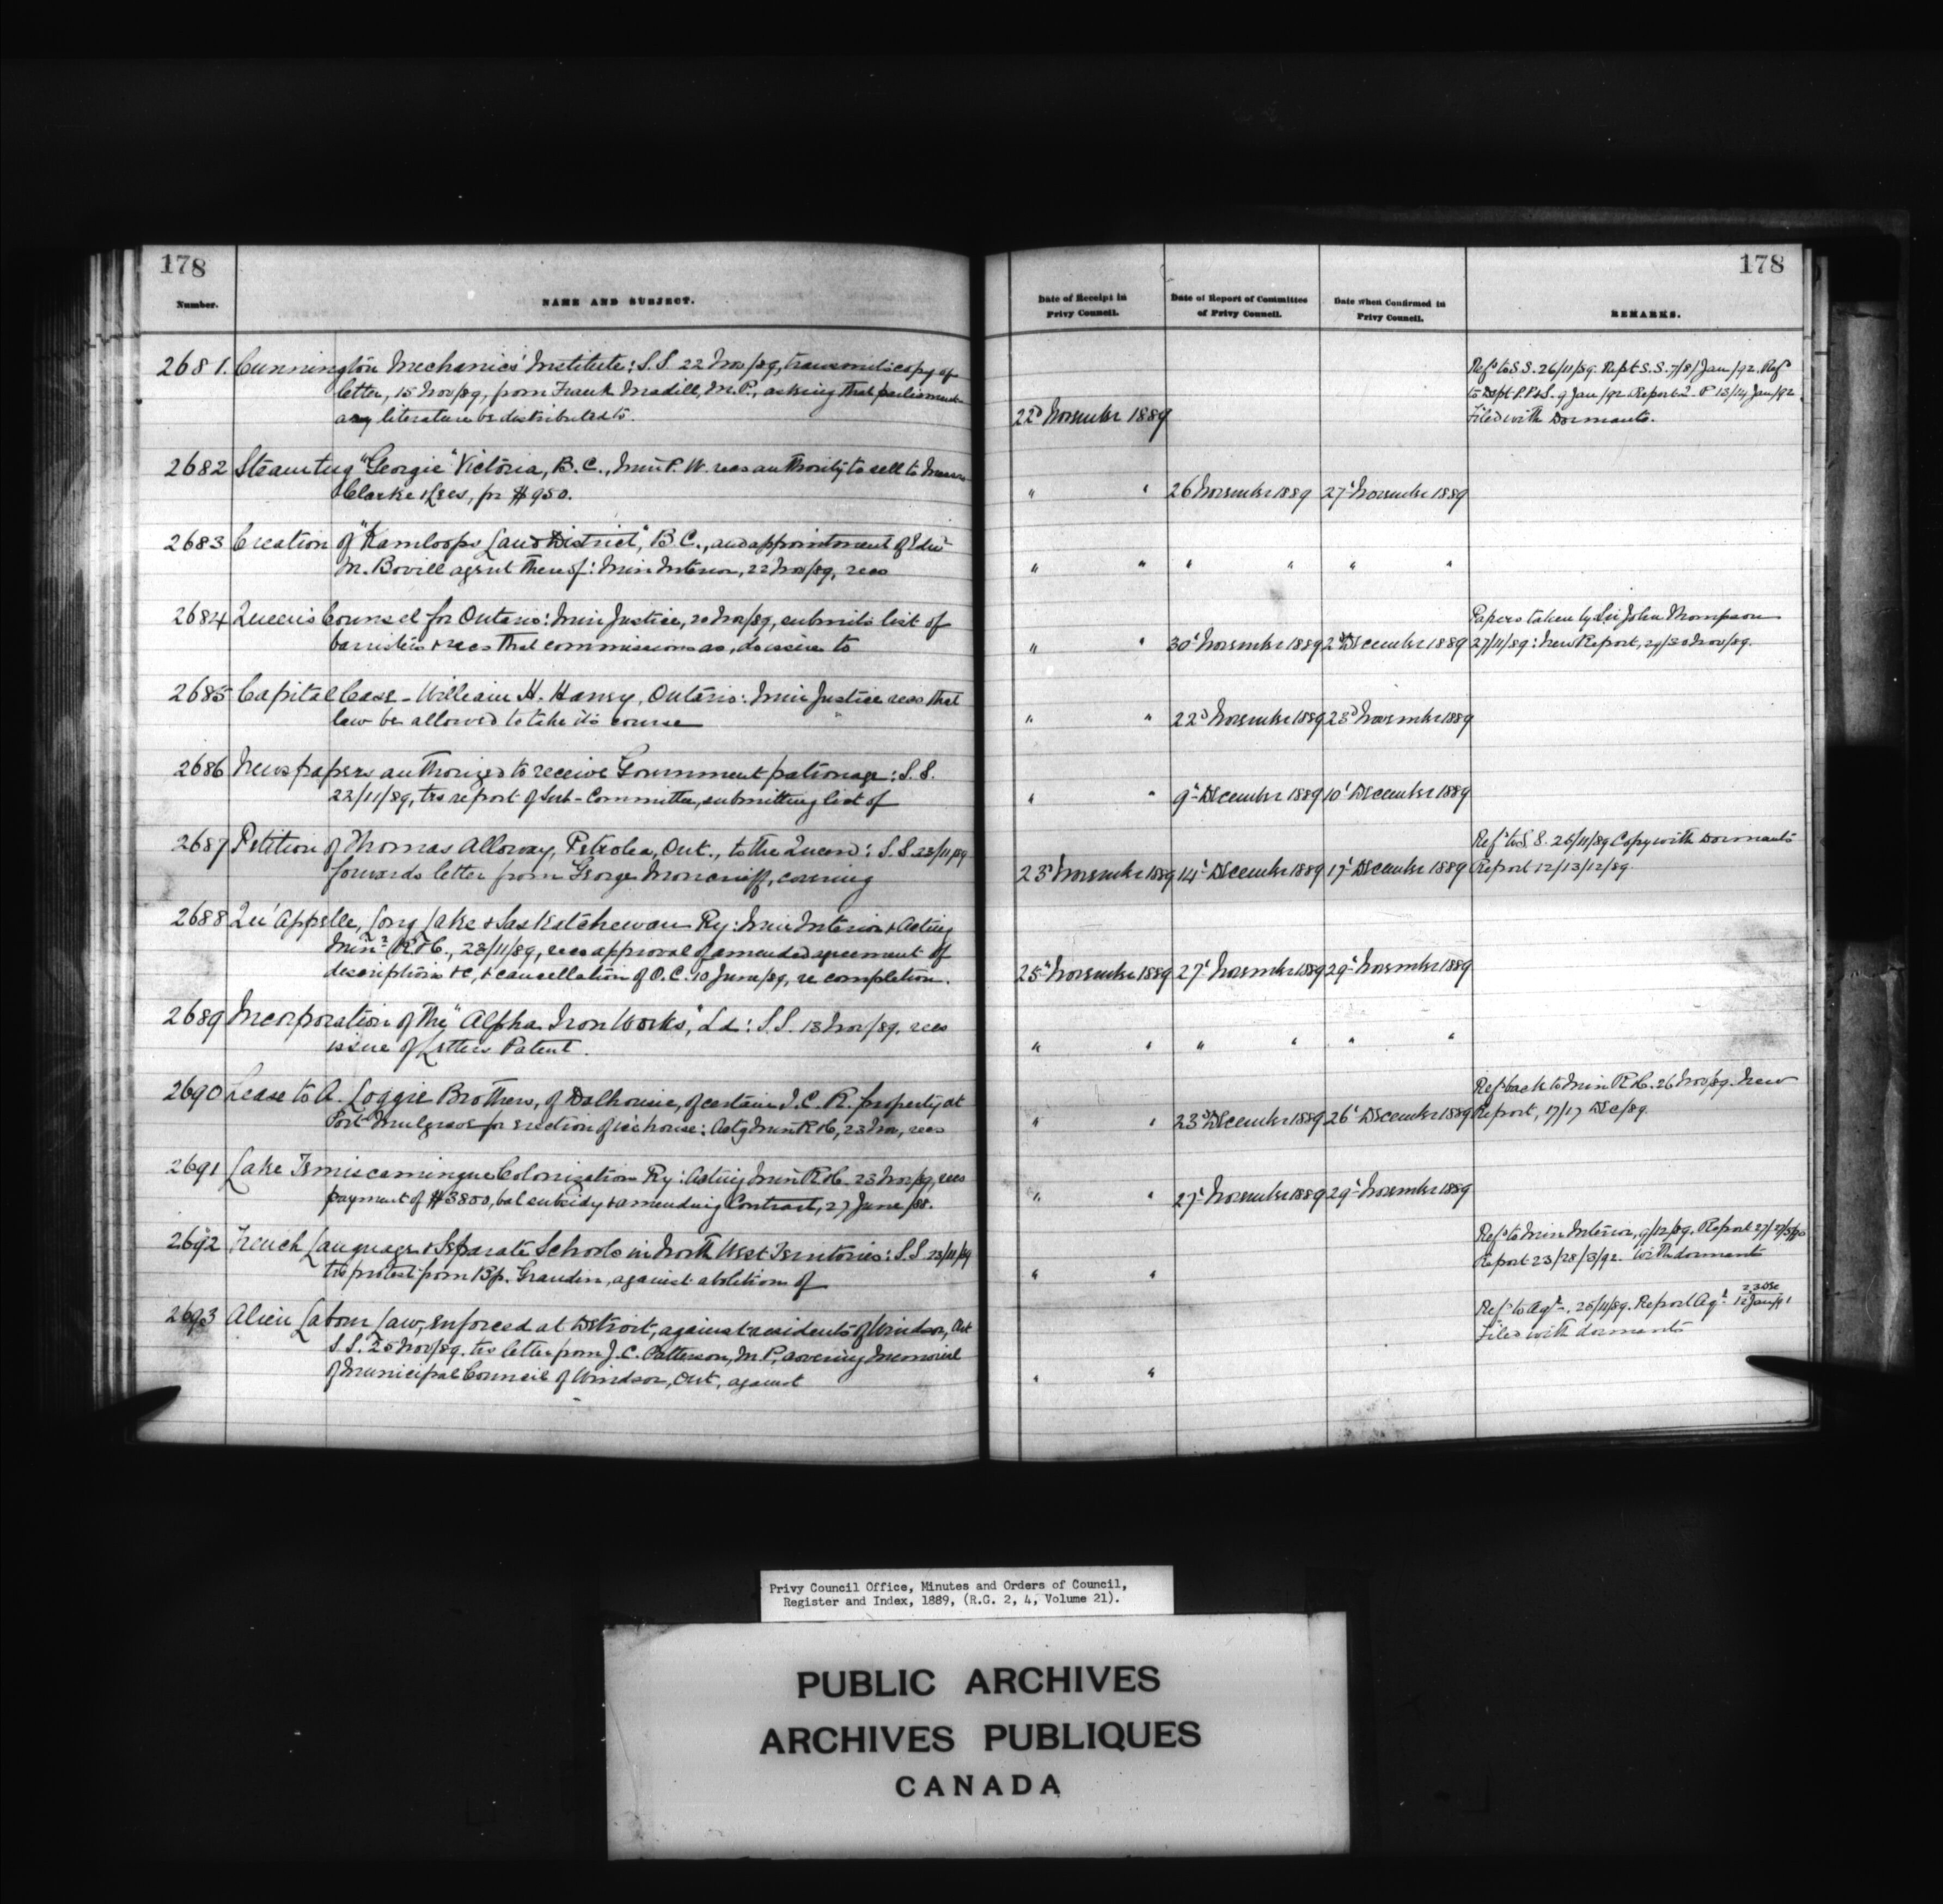 178
178
Number.
NAME AND SUBJECT.
Date of Receipt in
Privy Council.
Date of Report of Committee
of Privy Council.
Date when Confirmed in
Privy Council.
REMARKS.
2681. Cunnington Mechanics' Institute: S.S. 22 Nov/89, transmits copy of
letter, 15 Nov/89, from Frank Madill, M.P., asking that parliament-
ary literature be distributed to.
22d November 1889
Refd to S.S. 26/11/89. Rept S.S. 7/8/Jan/92. Refd
to Dept P.P.&S. 9 Jan/92. Report 13/14 Jan/92.
Filed with Dormants.
2682 Steam tug "Georgie" Victoria, B.C., Min P.W. recs authority to sell to Messrs
Clarke & Lees, for $950.
" " 26 November 1889 27th November 1889
2683 Creation of "Kamloops Land District", B.C., and appointment of Edw
M. Bovill agent thereof: Min Interior, 22 Nov/89, recs
" " " " " "
2684 Queen's Counsel for Ontario: Min Justice, 20 Nov/89, submits list of
barristers & recs that commissions as, do issue to
" " 30th November 1889 2nd December 1889
Papers taken by Sir John Thompson
27/11/89: New Report, 29/30 Nov/89.
2685 Capital Case - William H. Harvey, Ontario: Min Justice recs that
law be allowed to take its course
" " 22d November 1889 23d November 1889
2686 Newspapers authorized to receive Government patronage: S.S.
22/11/89, trs report of Sub-Committee, submitting list of
" " 9th December 1889 10th December 1889
2687 Petition of Thomas Alloway, Petrolea, Ont., to the Queen: S.S. 23/11/89
forwards letter from George Moncrieff, covering
23d November 1889 14th December 1889 17th December 1889
Refd to S.S. 26/11/89 Copy with Dormants
Report 12/13/12/89.
2688 Qu'Appelle, Long Lake & Saskatchewan Ry: Min Interior & Acting
Minr R & C., 23/11/89, recs approval of amended agreement of
description &c, & cancellation of O.C. 10 June/89, re completion.
25th November 1889 27th November 1889 29th November 1889
2689 Incorporation of the "Alpha Iron Works", Ld: S.S. 13 Nov/89, recs
issue of Letters Patent.
" " " " " "
2690 Lease to A. Loggie Brothers, of Dalhousie, of certain I.C.R. property at
Port Mulgrave for erection of ice house: Actg Min R&C, 23 Nov, recs
" " 23d December 1889 26th December 1889
Refd back to Min R&C. 26 Nov/89. New
Report, 17/17 Dec/89.
2691 Lake Temiscamingue Colonization Ry: Acting Min R&C. 23 Nov/89, recs
payment of $3800, bal subsidy & amending Contract, 27 June/88.
" " 27th November 1889 29th November 1889
2692 French Language & Separate Schools in North West Territories: S.S. 23/11/89
trs protest from Bp. Grandin, against abolition of
" "
Refd to Min Interior, 9/12/89. Report
Report 23/28/3/92. With dormants
2693 Alien Labour Law, enforced at Detroit, against residents of Windsor, Ont
S.S. 25 Nov/89. trs letter from J.C. Patterson, M.P., covering Memorial
of Municipal Council of Windsor, Ont, against
" "
Refd to Agr. 25/11/89. Report Agr. 23 Dec 12 Jan/91
Filed with dormants
Privy Council Office, Minutes and Orders of Council,
Register and Index, 1889, (R.G. 2, 4, Volume 21).
PUBLIC ARCHIVES
ARCHIVES PUBLIQUES
CANADA